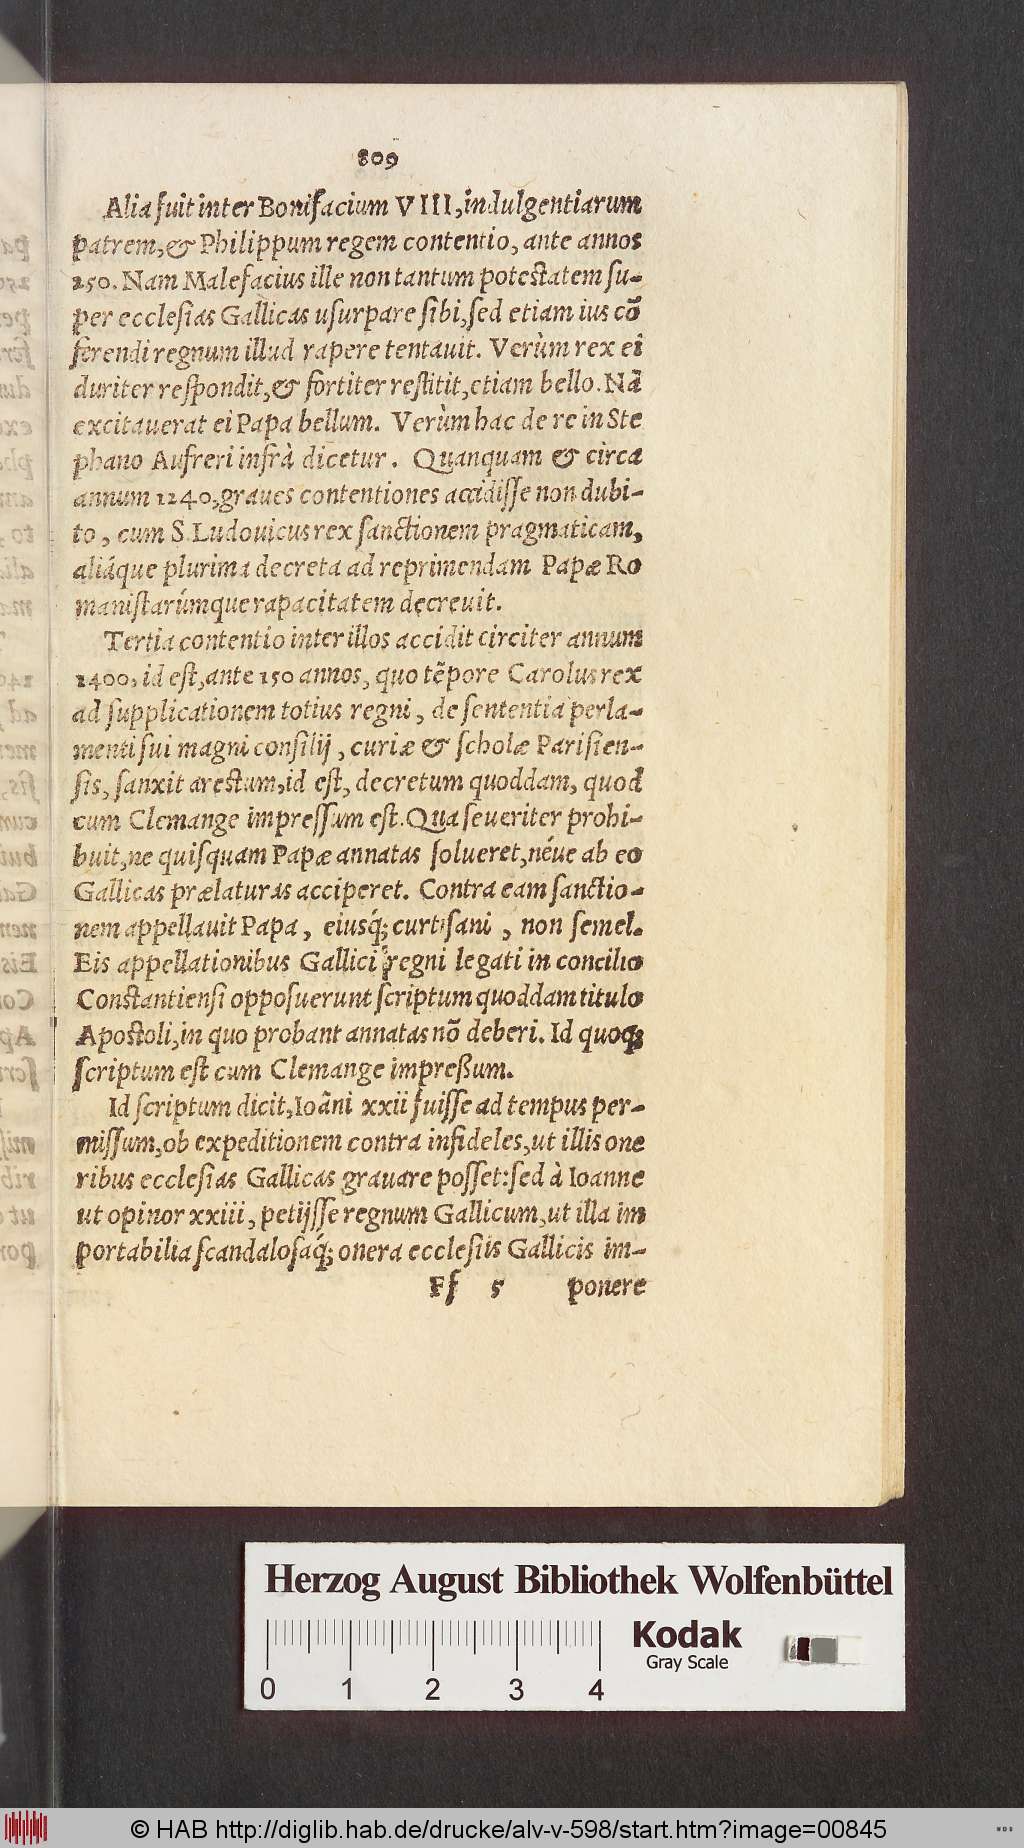 809
Alia ſuit inter Bonifacium VIII, indulgentiarum
patrem, & Philippum regem contentio, ante annos
250. Nam Malefacius ille non tantum poteſtatem ſu-
per eccleſias Gallicas uſurpare ſibi, ſed etiam ius cõ
ferendi regnum illud rapere tentauit. Verùm rex ei
duriter reſpondit, & fortiter reſtitit, etiam bello. Nã
excitauerat ei Papa bellum. Verùm hac de re in Ste
phano Aufreri infrà dicetur. Quanquam & circa
annum 1240, graues contentiones accidiſſe non dubi-
to, cum S. Ludouicus rex ſanctionem pragmaticam,
aliáque plurima decreta ad reprimendam Papæ Ro
maniſtarúmque rapacitatem decreuit.
Tertia contentio inter illos accidit circiter annum
1400, id eſt, ante 150 annos, quo tẽpore Carolus rex
ad ſupplicationem totius regni, de ſententia perla-
menti ſui magni conſilij, curiæ & ſcholæ Pariſien-
ſis, ſanxit areſtum, id eſt, decretum quoddam, quod
cum Clemange impreſſum eſt. Qua ſeueriter prohi-
buit, ne quiſquam Papæ annatas ſolueret, néue ab eo
Gallicas prælaturas acciperet. Contra eam ſanctio-
nem appellauit Papa, eiusq́; curtiſani, non ſemel.
Eis appellationibus Gallici regni legati in concilio
Conſtantienſi oppoſuerunt ſcriptum quoddam titulo
Apoſtoli, in quo probant annatas nõ deberi. Id quoq;
ſcriptum eſt cum Clemange impreßum.
Id ſcriptum dicit, Ioãni xxii fuiſſe ad tempus per-
miſſum, ob expeditionem contra infideles, ut illis one
ribus eccleſias Gallicas grauare poſſet: ſed à Ioanne
ut opinor xxiii, petijſſe regnum Gallicum, ut illa im
portabilia ſcandaloſaq́; onera eccleſiis Gallicis im-
Ff 5 ponere
Herzog August Bibliothek Wolfenbüttel
Kodak
Gray Scale
0 1 2 3 4
© HAB http://diglib.hab.de/drucke/alv-v-598/start.htm?image=00845